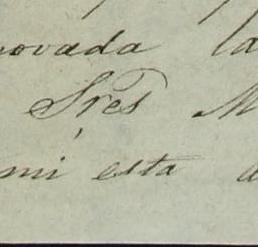 ovada la
Sres M
mi esta